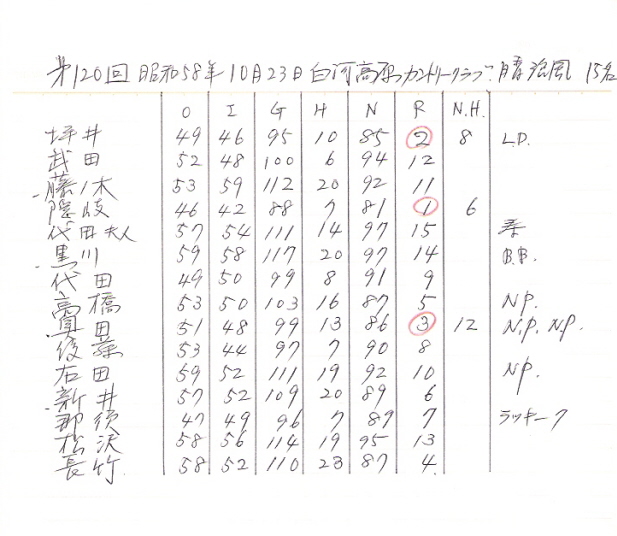 第120回 昭和58年10月23日 白河高原カントリークラブ 晴 強風 15名
O I G H N R N.H.
坪井 49 46 95 10 85 2 8 L.D.
武田 52 48 100 6 94 12
藤ノ木 53 59 112 20 92 11
隠岐 46 42 88 7 81 1 6
代田夫人 57 54 111 14 97 15
黒川 59 58 117 20 97 14 B.B.
代田 49 50 99 8 91 9
高橋 53 50 103 16 87 5 NP.
真田 51 48 99 13 86 3 12 N.P. NP.
後藤 53 44 97 7 90 8
右田 59 52 111 19 92 10 NP.
新井 57 52 109 20 89 6
那須 47 49 96 7 89 7 ラッキー7
松沢 58 56 114 19 95 13
長竹 58 52 110 23 87 4